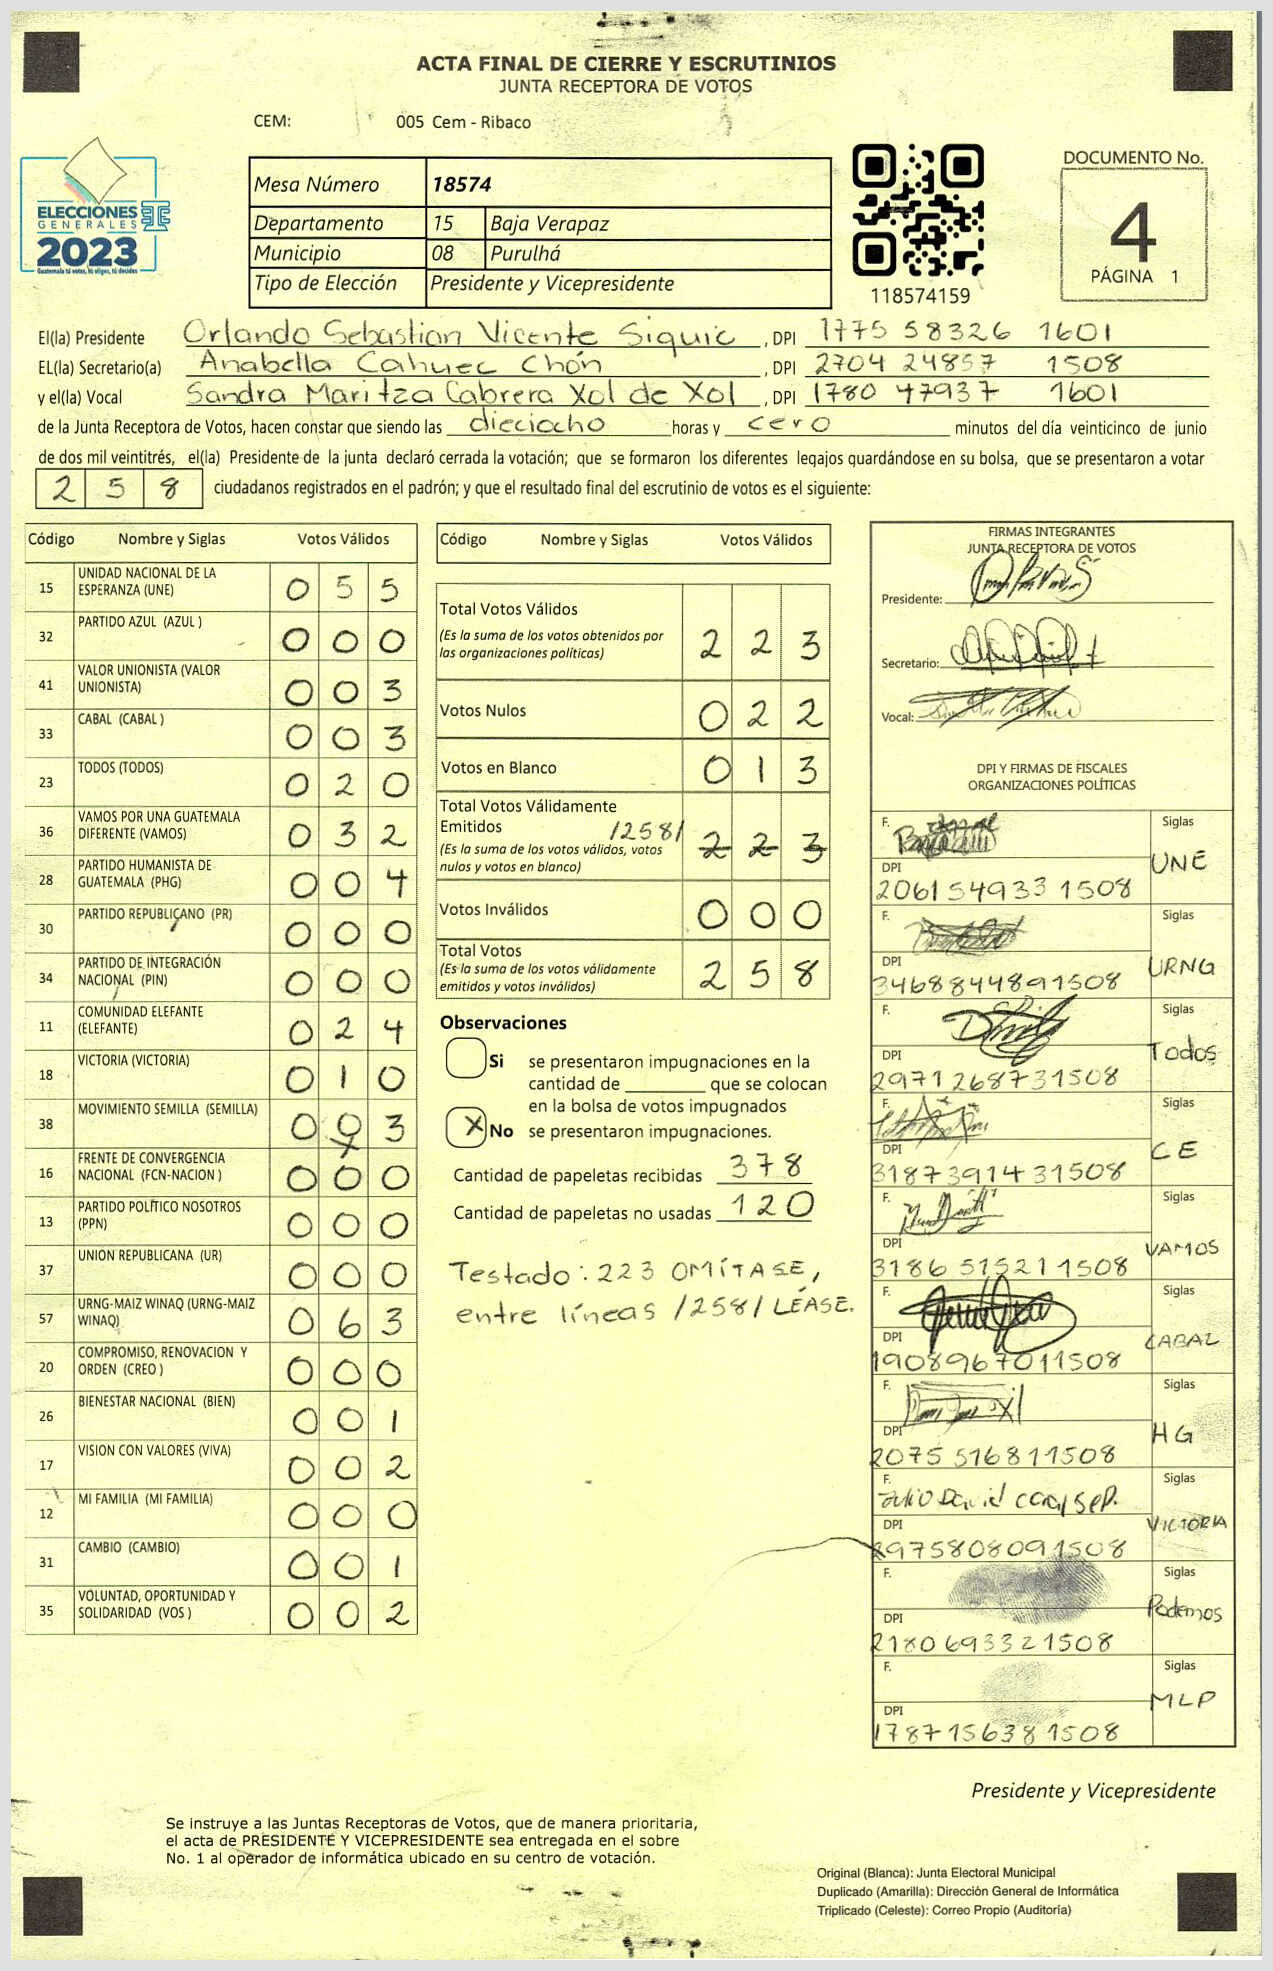 ACTA FINAL DE CIERRE Y ESCRUTINIOS
JUNTA RECEPTORA DE VOTOS
CEM: 005 Cem - Ribaco
ELECCIONES
GENERALES
2023
Guatemala tú votas, tú eliges, tú decides
Mesa Número 18574
Departamento 15 Baja Verapaz
Municipio 08 Purulhá
Tipo de Elección Presidente y Vicepresidente
118574159
DOCUMENTO No.
4
PÁGINA 1
El(la) Presidente Orlando Sebastian Vicente Siquic, DPI 1775 58326 1601
EL(la) Secretario(a) Anabella Cahuec Chón, DPI 2704 24857 1508
y el(la) Vocal Sandra Maritza Cabrera Xol de Xol, DPI 1780 47937 1601
de la Junta Receptora de Votos, hacen constar que siendo las dieciocho horas y cero minutos del día veinticinco de junio
de dos mil veintitrés, el(la) Presidente de la junta declaró cerrada la votación; que se formaron los diferentes legajos guardándose en su bolsa, que se presentaron a votar
2 5 8 ciudadanos registrados en el padrón; y que el resultado final del escrutinio de votos es el siguiente:
Código Nombre y Siglas Votos Válidos
15 UNIDAD NACIONAL DE LA ESPERANZA (UNE) 0 5 5
32 PARTIDO AZUL (AZUL ) 0 0 0
41 VALOR UNIONISTA (VALOR UNIONISTA) 0 0 3
33 CABAL (CABAL ) 0 0 3
23 TODOS (TODOS) 0 2 0
36 VAMOS POR UNA GUATEMALA DIFERENTE (VAMOS) 0 3 2
28 PARTIDO HUMANISTA DE GUATEMALA (PHG) 0 0 4
30 PARTIDO REPUBLICANO (PR) 0 0 0
34 PARTIDO DE INTEGRACIÓN NACIONAL (PIN) 0 0 0
11 COMUNIDAD ELEFANTE (ELEFANTE) 0 2 4
18 VICTORIA (VICTORIA) 0 1 0
38 MOVIMIENTO SEMILLA (SEMILLA) 0 0 3
16 FRENTE DE CONVERGENCIA NACIONAL (FCN-NACION ) 0 0 0
13 PARTIDO POLÍTICO NOSOTROS (PPN) 0 0 0
37 UNION REPUBLICANA (UR) 0 0 0
57 URNG-MAIZ WINAQ (URNG-MAIZ WINAQ) 0 6 3
20 COMPROMISO, RENOVACION Y ORDEN (CREO ) 0 0 0
26 BIENESTAR NACIONAL (BIEN) 0 0 1
17 VISION CON VALORES (VIVA) 0 0 2
12 MI FAMILIA (MI FAMILIA) 0 0 0
31 CAMBIO (CAMBIO) 0 0 1
35 VOLUNTAD, OPORTUNIDAD Y SOLIDARIDAD (VOS ) 0 0 2
Código Nombre y Siglas Votos Válidos
Total Votos Válidos
(Es la suma de los votos obtenidos por
las organizaciones políticas) 2 2 3
Votos Nulos 0 2 2
Votos en Blanco 0 1 3
Total Votos Válidamente
Emitidos /258/ 2 2 3
(Es la suma de los votos válidos, votos
nulos y votos en blanco)
Votos Inválidos 0 0 0
Total Votos
(Es la suma de los votos válidamente
emitidos y votos inválidos) 2 5 8
Observaciones
Si se presentaron impugnaciones en la
cantidad de que se colocan
en la bolsa de votos impugnados
X No se presentaron impugnaciones.
Cantidad de papeletas recibidas 378
Cantidad de papeletas no usadas 120
Testado: 223 OMÍTASE,
entre líneas /258/ LÉASE.
FIRMAS INTEGRANTES
JUNTA RECEPTORA DE VOTOS
Presidente:
Secretario:
Vocal:
DPI Y FIRMAS DE FISCALES
ORGANIZACIONES POLÍTICAS
F. Siglas
UNE
DPI
2061 54933 1508
F. Siglas
URNG
DPI
3468844891508
F. Siglas
Todos
DPI
2971268731508
F. Siglas
CE
DPI
3187391431508
F. Siglas
VAMOS
DPI
3186 51521 1508
F. Siglas
CABAL
DPI
1908967011508
F. Siglas
HG
DPI
2075 51681 1508
F. Siglas
Julio David
VICTORIA
DPI
2975808091508
F. Siglas
Podemos
DPI
2180693321508
F. Siglas
MLP
DPI
1787156381508
Presidente y Vicepresidente
Se instruye a las Juntas Receptoras de Votos, que de manera prioritaria,
el acta de PRESIDENTE Y VICEPRESIDENTE sea entregada en el sobre
No. 1 al operador de informática ubicado en su centro de votación.
Original (Blanca): Junta Electoral Municipal
Duplicado (Amarilla): Dirección General de Informática
Triplicado (Celeste): Correo Propio (Auditoría)